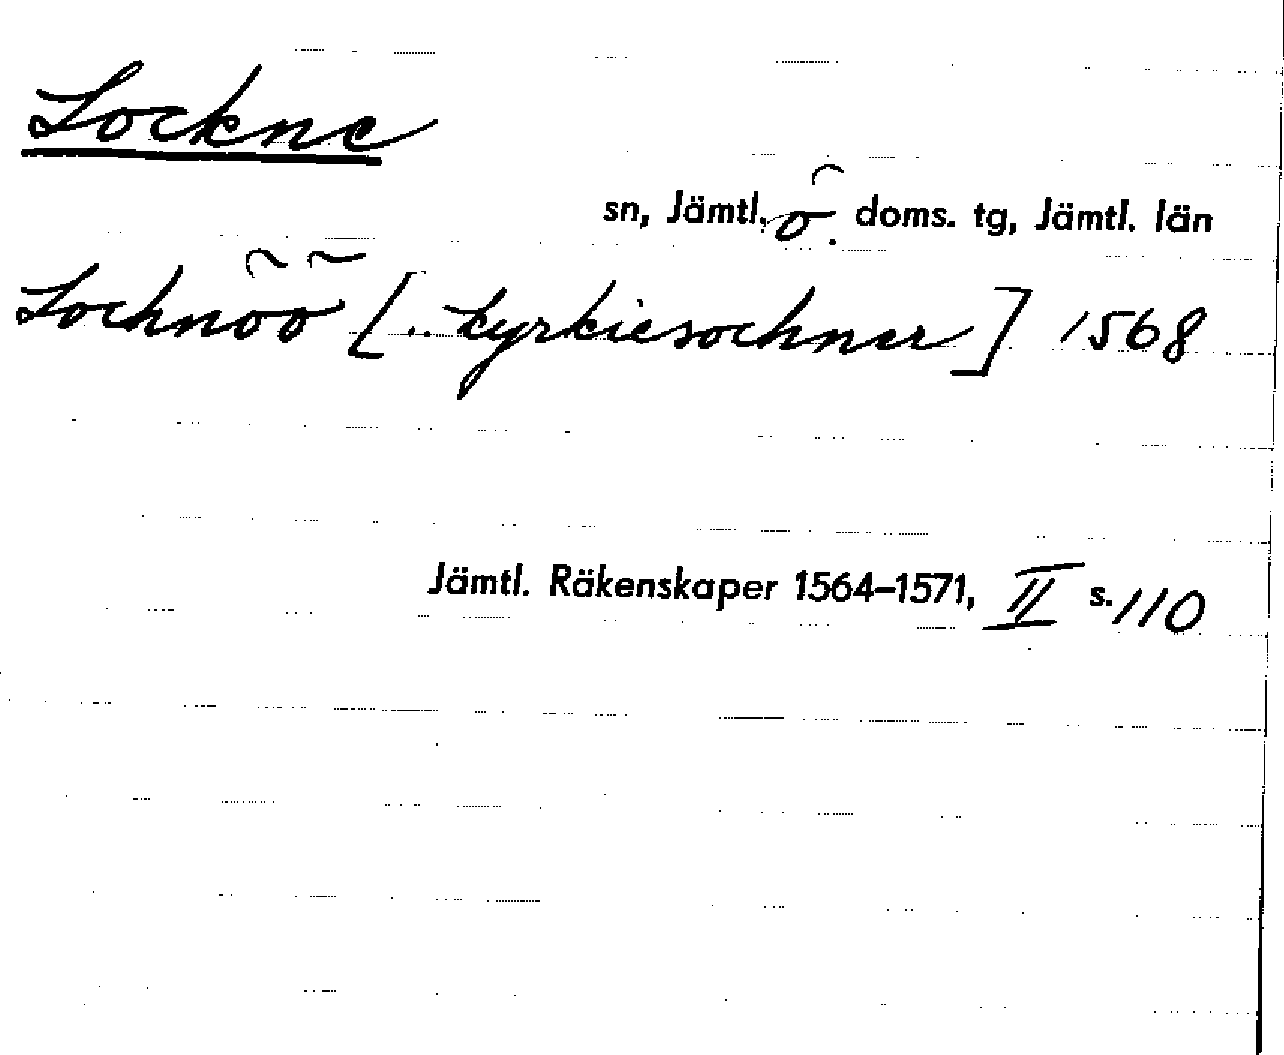 Lockne
sn, Jämtl. ö. doms. tg, Jämtl. län
Lochnöö [.. kyrkiesochner] 1568
Jämtl. Räkenskaper 1564–1571, II s. 110